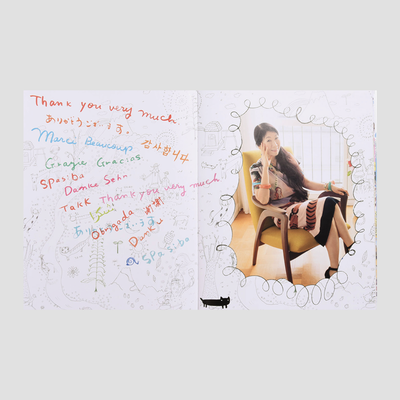 Thank you very much
ありがとうございます。
Merci Beaucoup 감사합니다
Grazie Gracias
SPasiba
Danke Sehr
Takk Thank you very much
Obrigada 谢谢
ありがとうございます
Danke
Spasibo